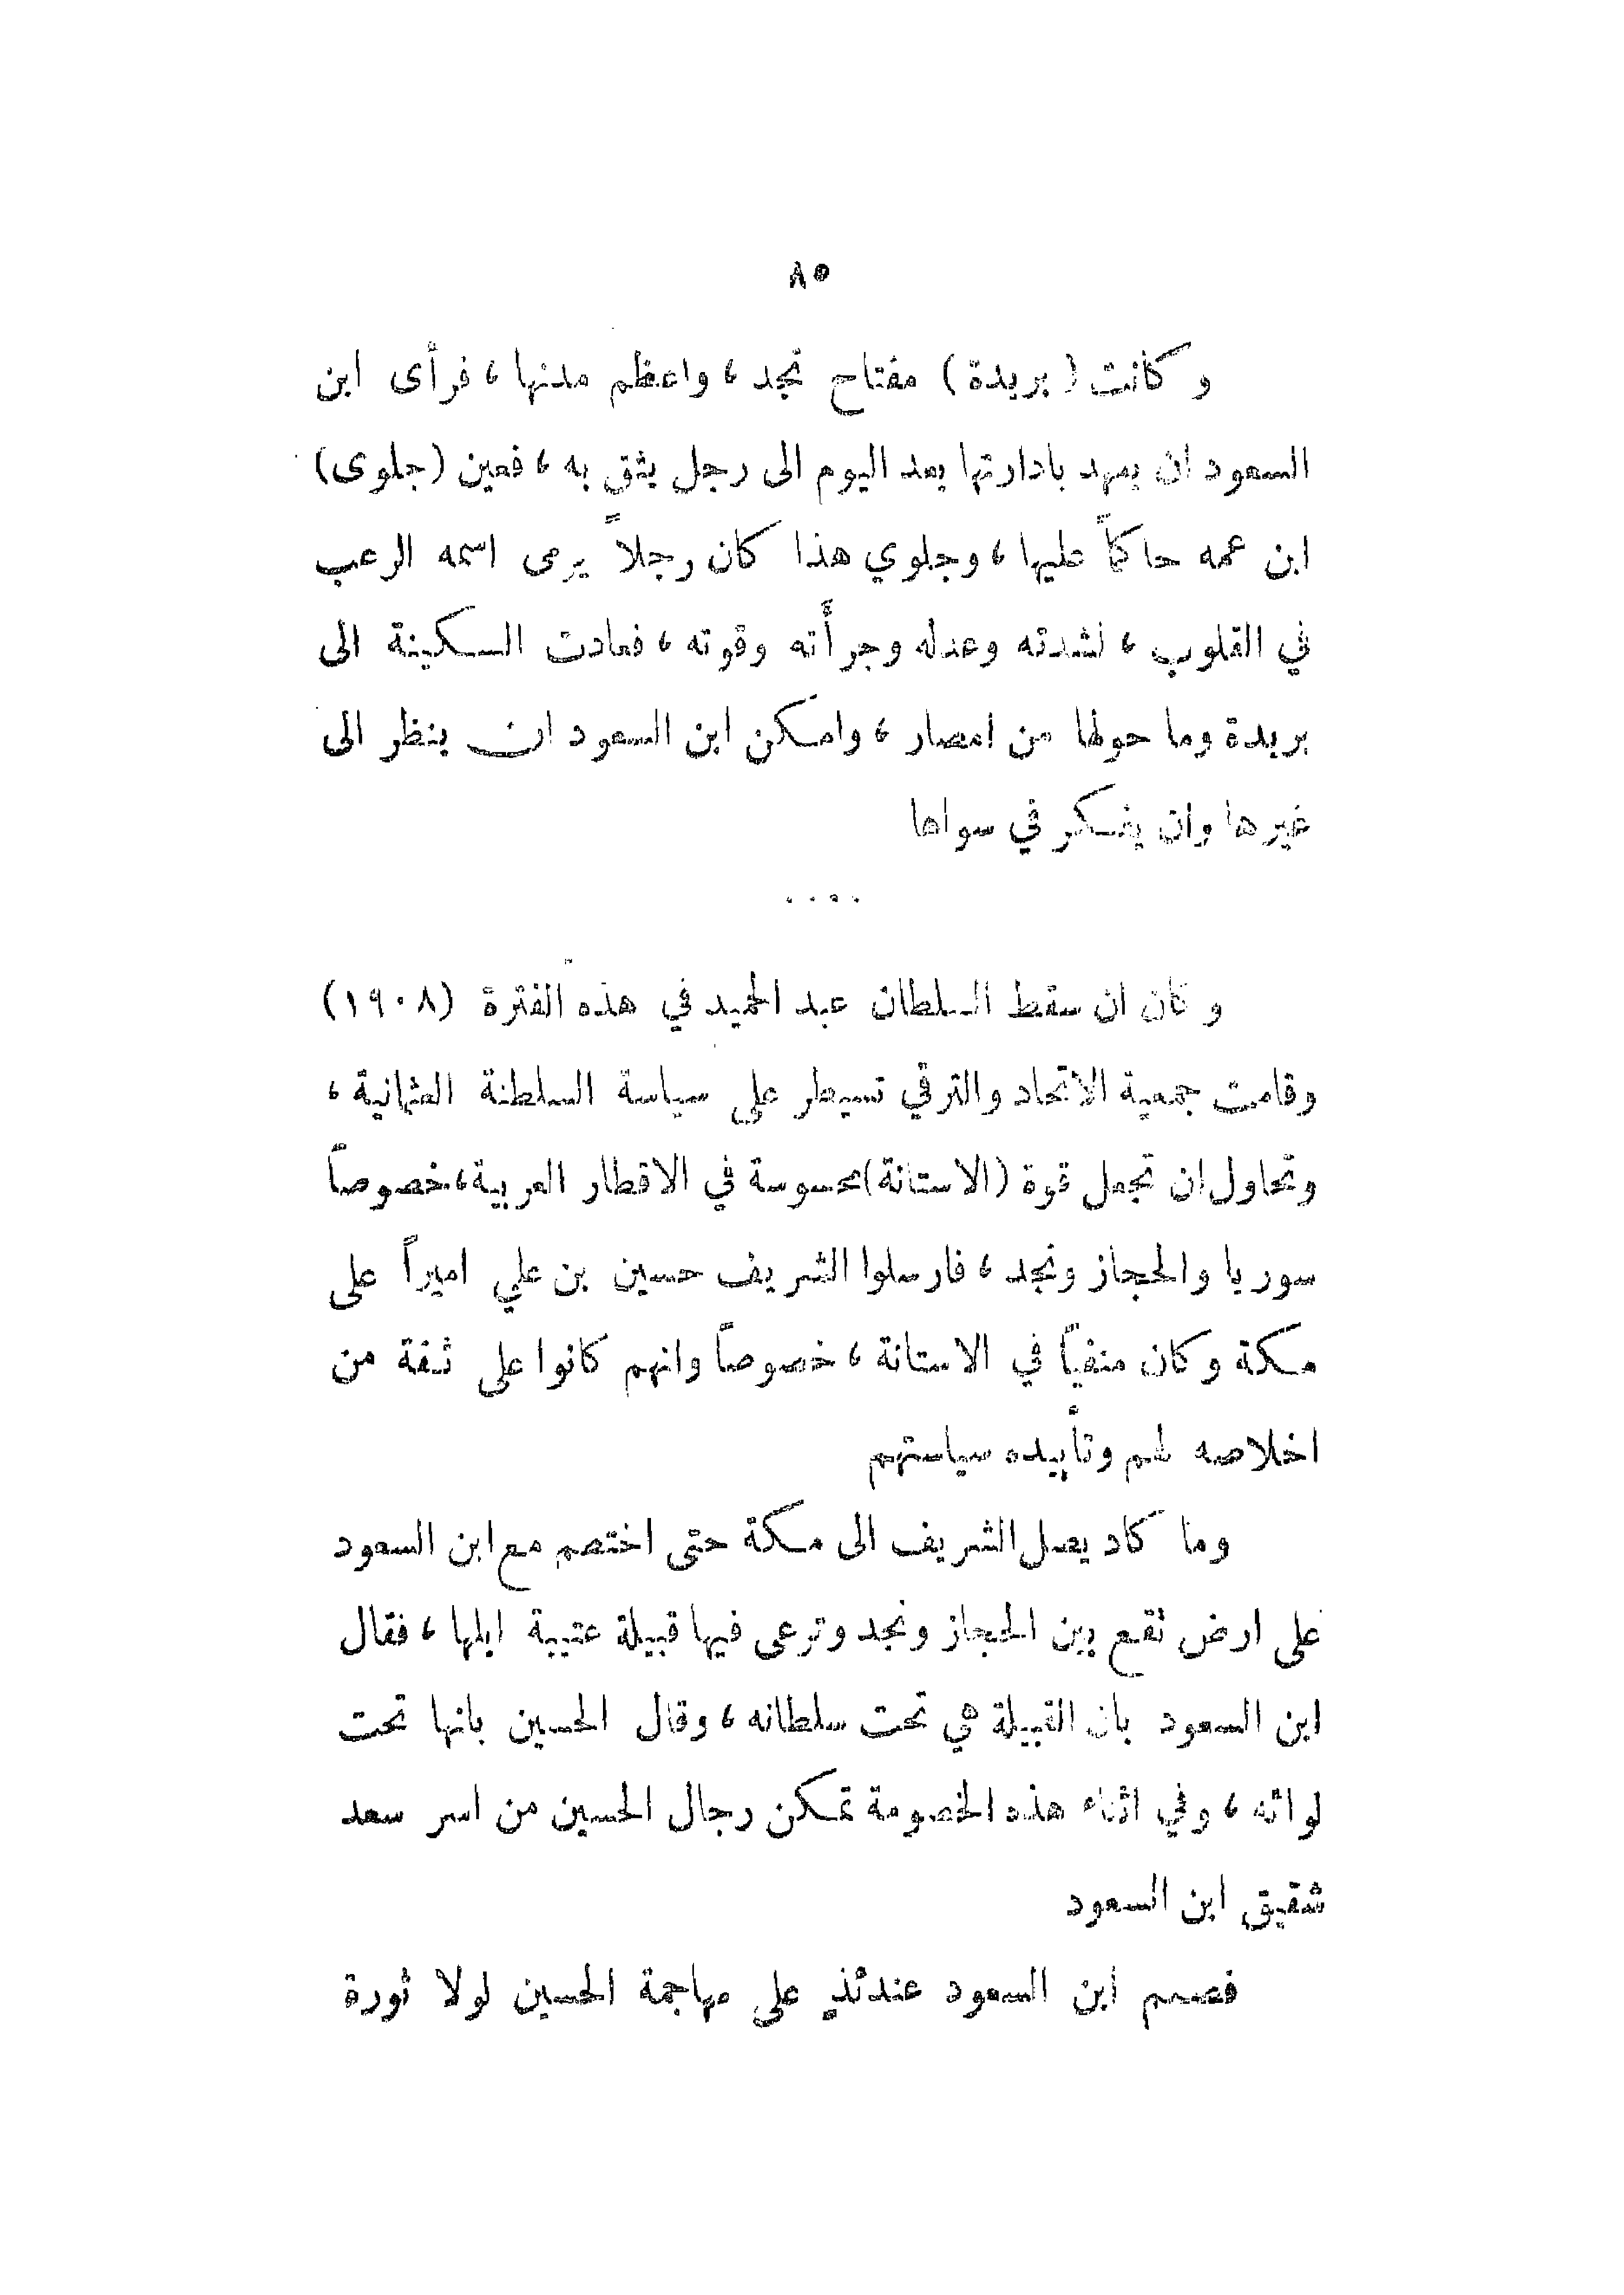 ٨٥
وكانت (بريدة) مفتاح نجد، واعظم مدنها، فرأى ابن
السعود ان يعهد بادارتها بعد اليوم الى رجل يثق به، فعين (جلوى)
ابن عمه حاكماً عليها، وجلوي هذا كان رجلاً يرمى اسمه الرعب
في القلوب، لشدته وعدله وجرأته وقوته، فعادت السكينة الى
بريدة وما حولها من امصار، وامكن ابن السعود ان ينظر الى
غيرها وان يفكر في سواها
....
وكان ان سقط السلطان عبد الحميد في هذه الفترة (١٩٠٨)
وقامت جمعية الاتحاد والترقي تسيطر على سياسة السلطنة العثمانية،
وتحاول ان تجعل قوة (الاستانة) محسوسة في الاقطار العربية، خصوصاً
سوريا والحجاز ونجد، فارسلوا الشريف حسين بن علي اميراً على
مكة وكان منفياً في الاستانة، خصوصاً وانهم كانوا على ثقة من
اخلاصه لهم وتأييده سياستهم
وما كاد يصل الشريف الى مكة حتى اختصم مع ابن السعود
على ارض تقع بين الحجاز ونجد وترعى فيها قبيلة عتيبة ابلها، فقال
ابن السعود بان القبيلة هي تحت سلطانه، وقال الحسين بانها تحت
لوائه، وفي اثناء هذه الخصومة تمكن رجال الحسين من اسر سعد
شقيق ابن السعود
فصمم ابن السعود عندئذٍ على مهاجمة الحسين لولا ثورة